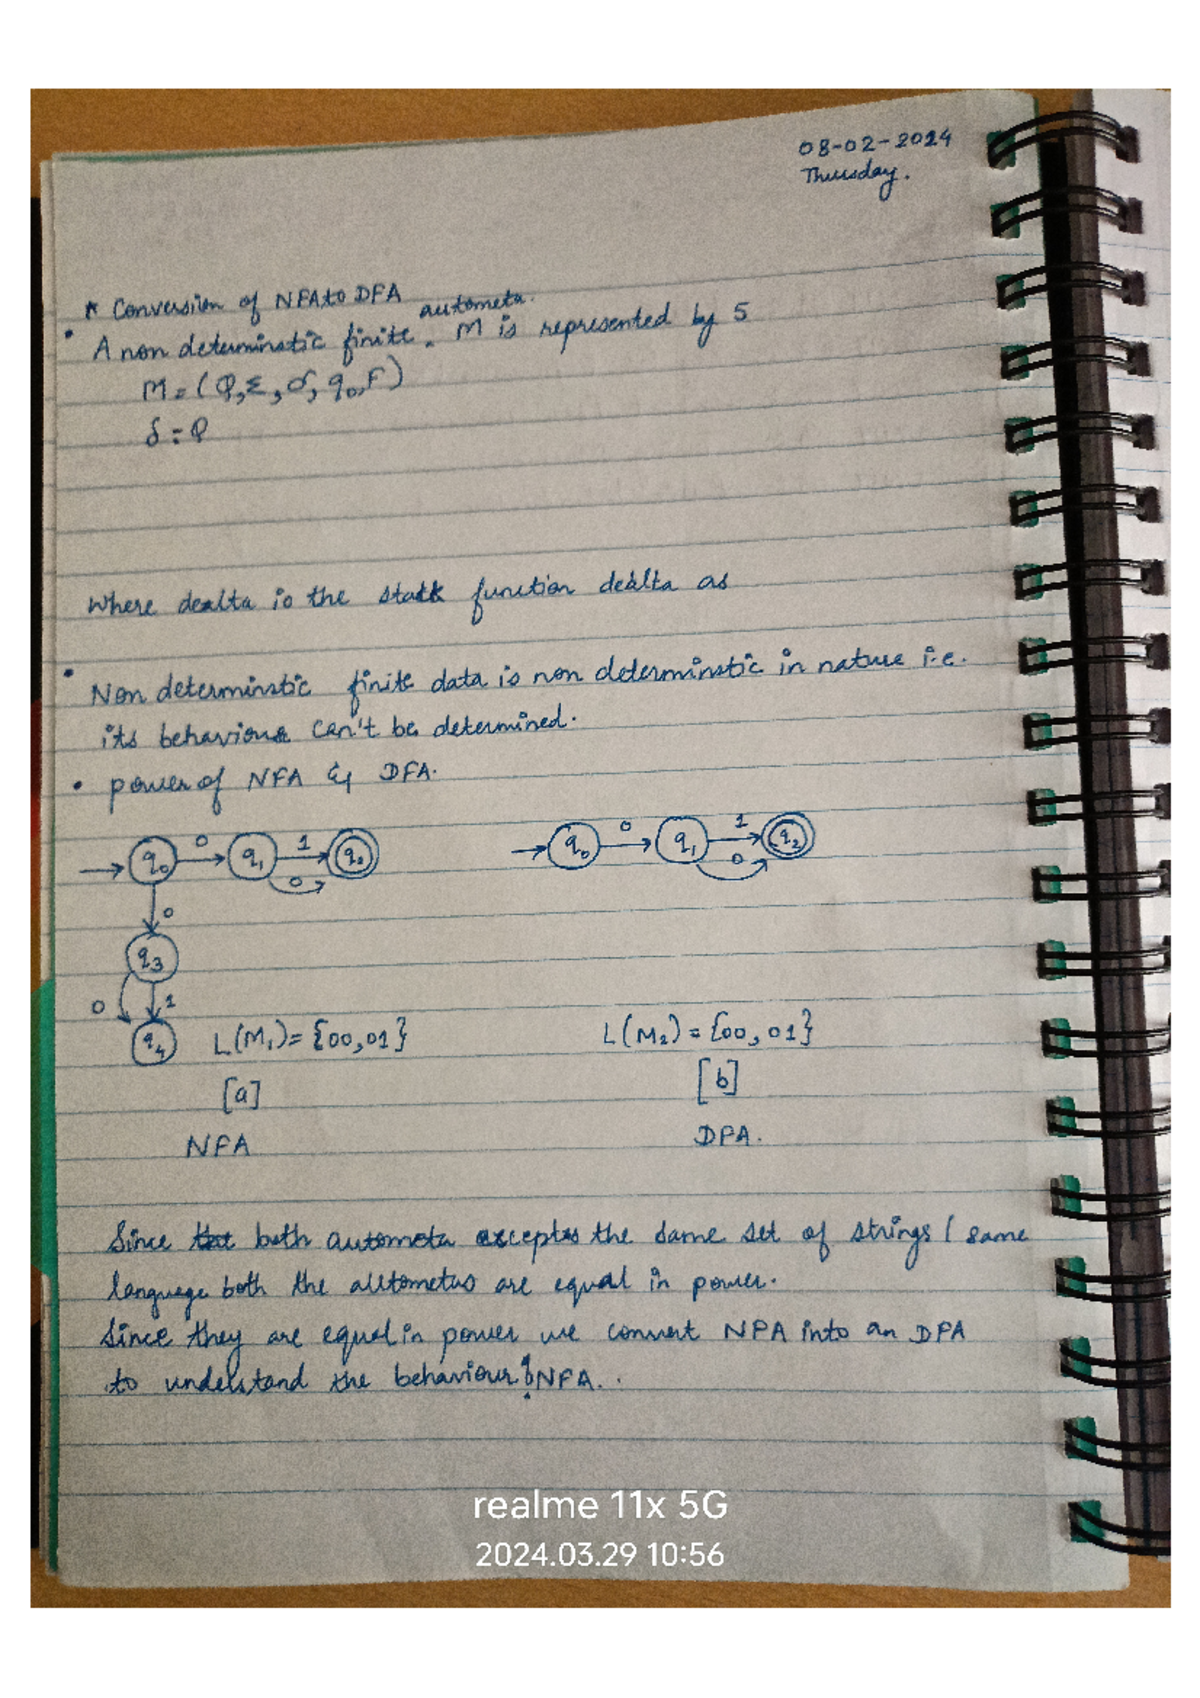 08-02-2024
Thursday.
* Conversion of NFA to DFA
• A non determinstic finite autometa. M is represented by 5
M = (Q, Σ, δ, q0, F)
δ = Q
Where dealta is the function dealta as
• Non determinstic finite data is non determinstic in nature i.e.
its behaviour can't be determined.
• power of NFA & DFA.
q0 0 q1 1 0
q0 0 q1 1 0 q2
0
q3
0 1
q4
L(M1) = {00,01}
L(M2) = {00,01}
[a]
[b]
NFA
DFA.
Since both autometa excepts the same set of strings / same
language both the autometus are equal in power.
Since they are equal in power we convert NFA into an DFA
to understand the behaviour of NFA.
realme 11x 5G
2024.03.29 10:56